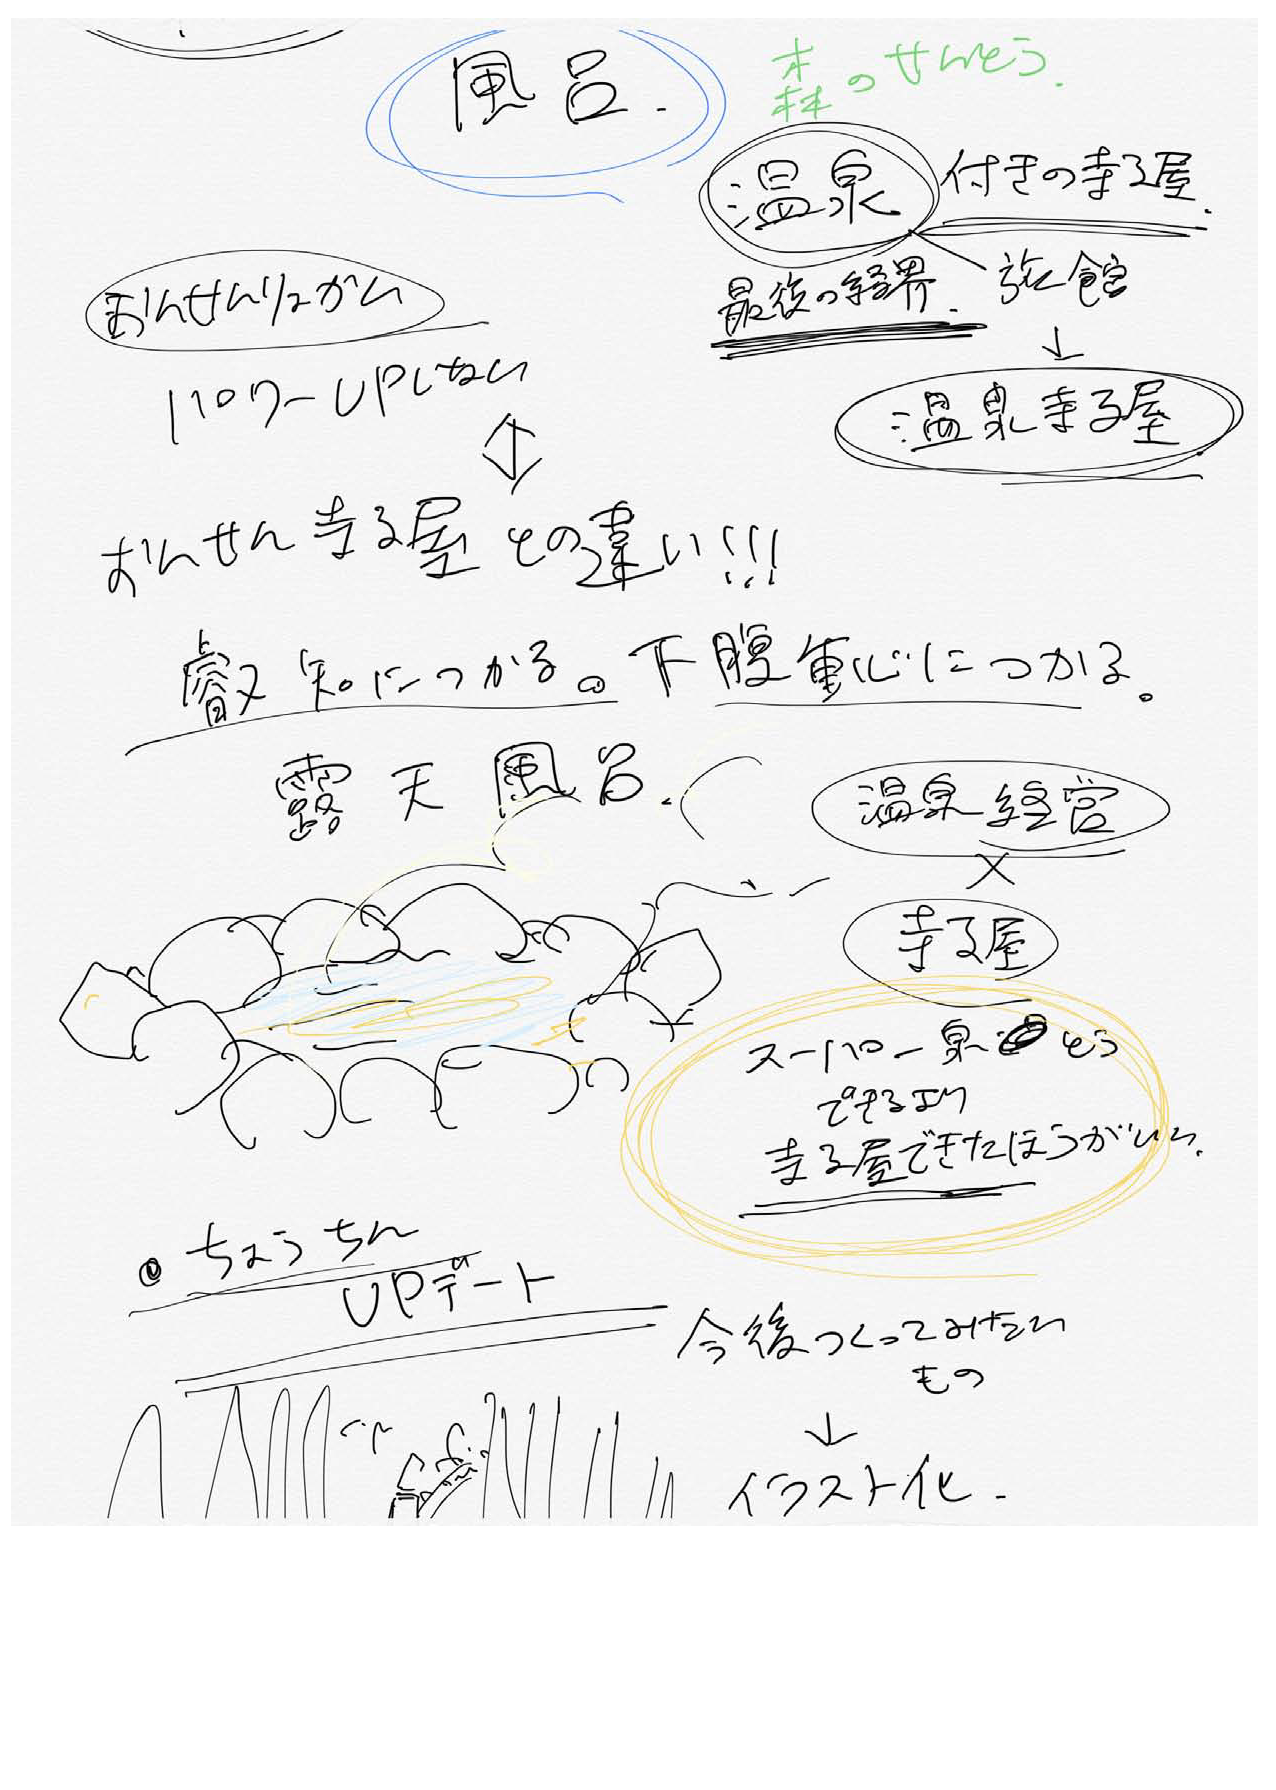 風呂.
森のせんとう.
温泉付きの寺る屋.
最後の経界.
旅館
↓
温泉寺る屋
おんせんりょかん
パワーUPしない
おんせん寺る屋との違い!!!
叡知につかる。下腹重心につかる。
露天風呂.
温泉経営
×
寺る屋
スーパー泉とう
できるより
寺る屋できたほうがいい.
ちょうちん
UPデート
今後つくってみたい
もの
↓
イラスト化.